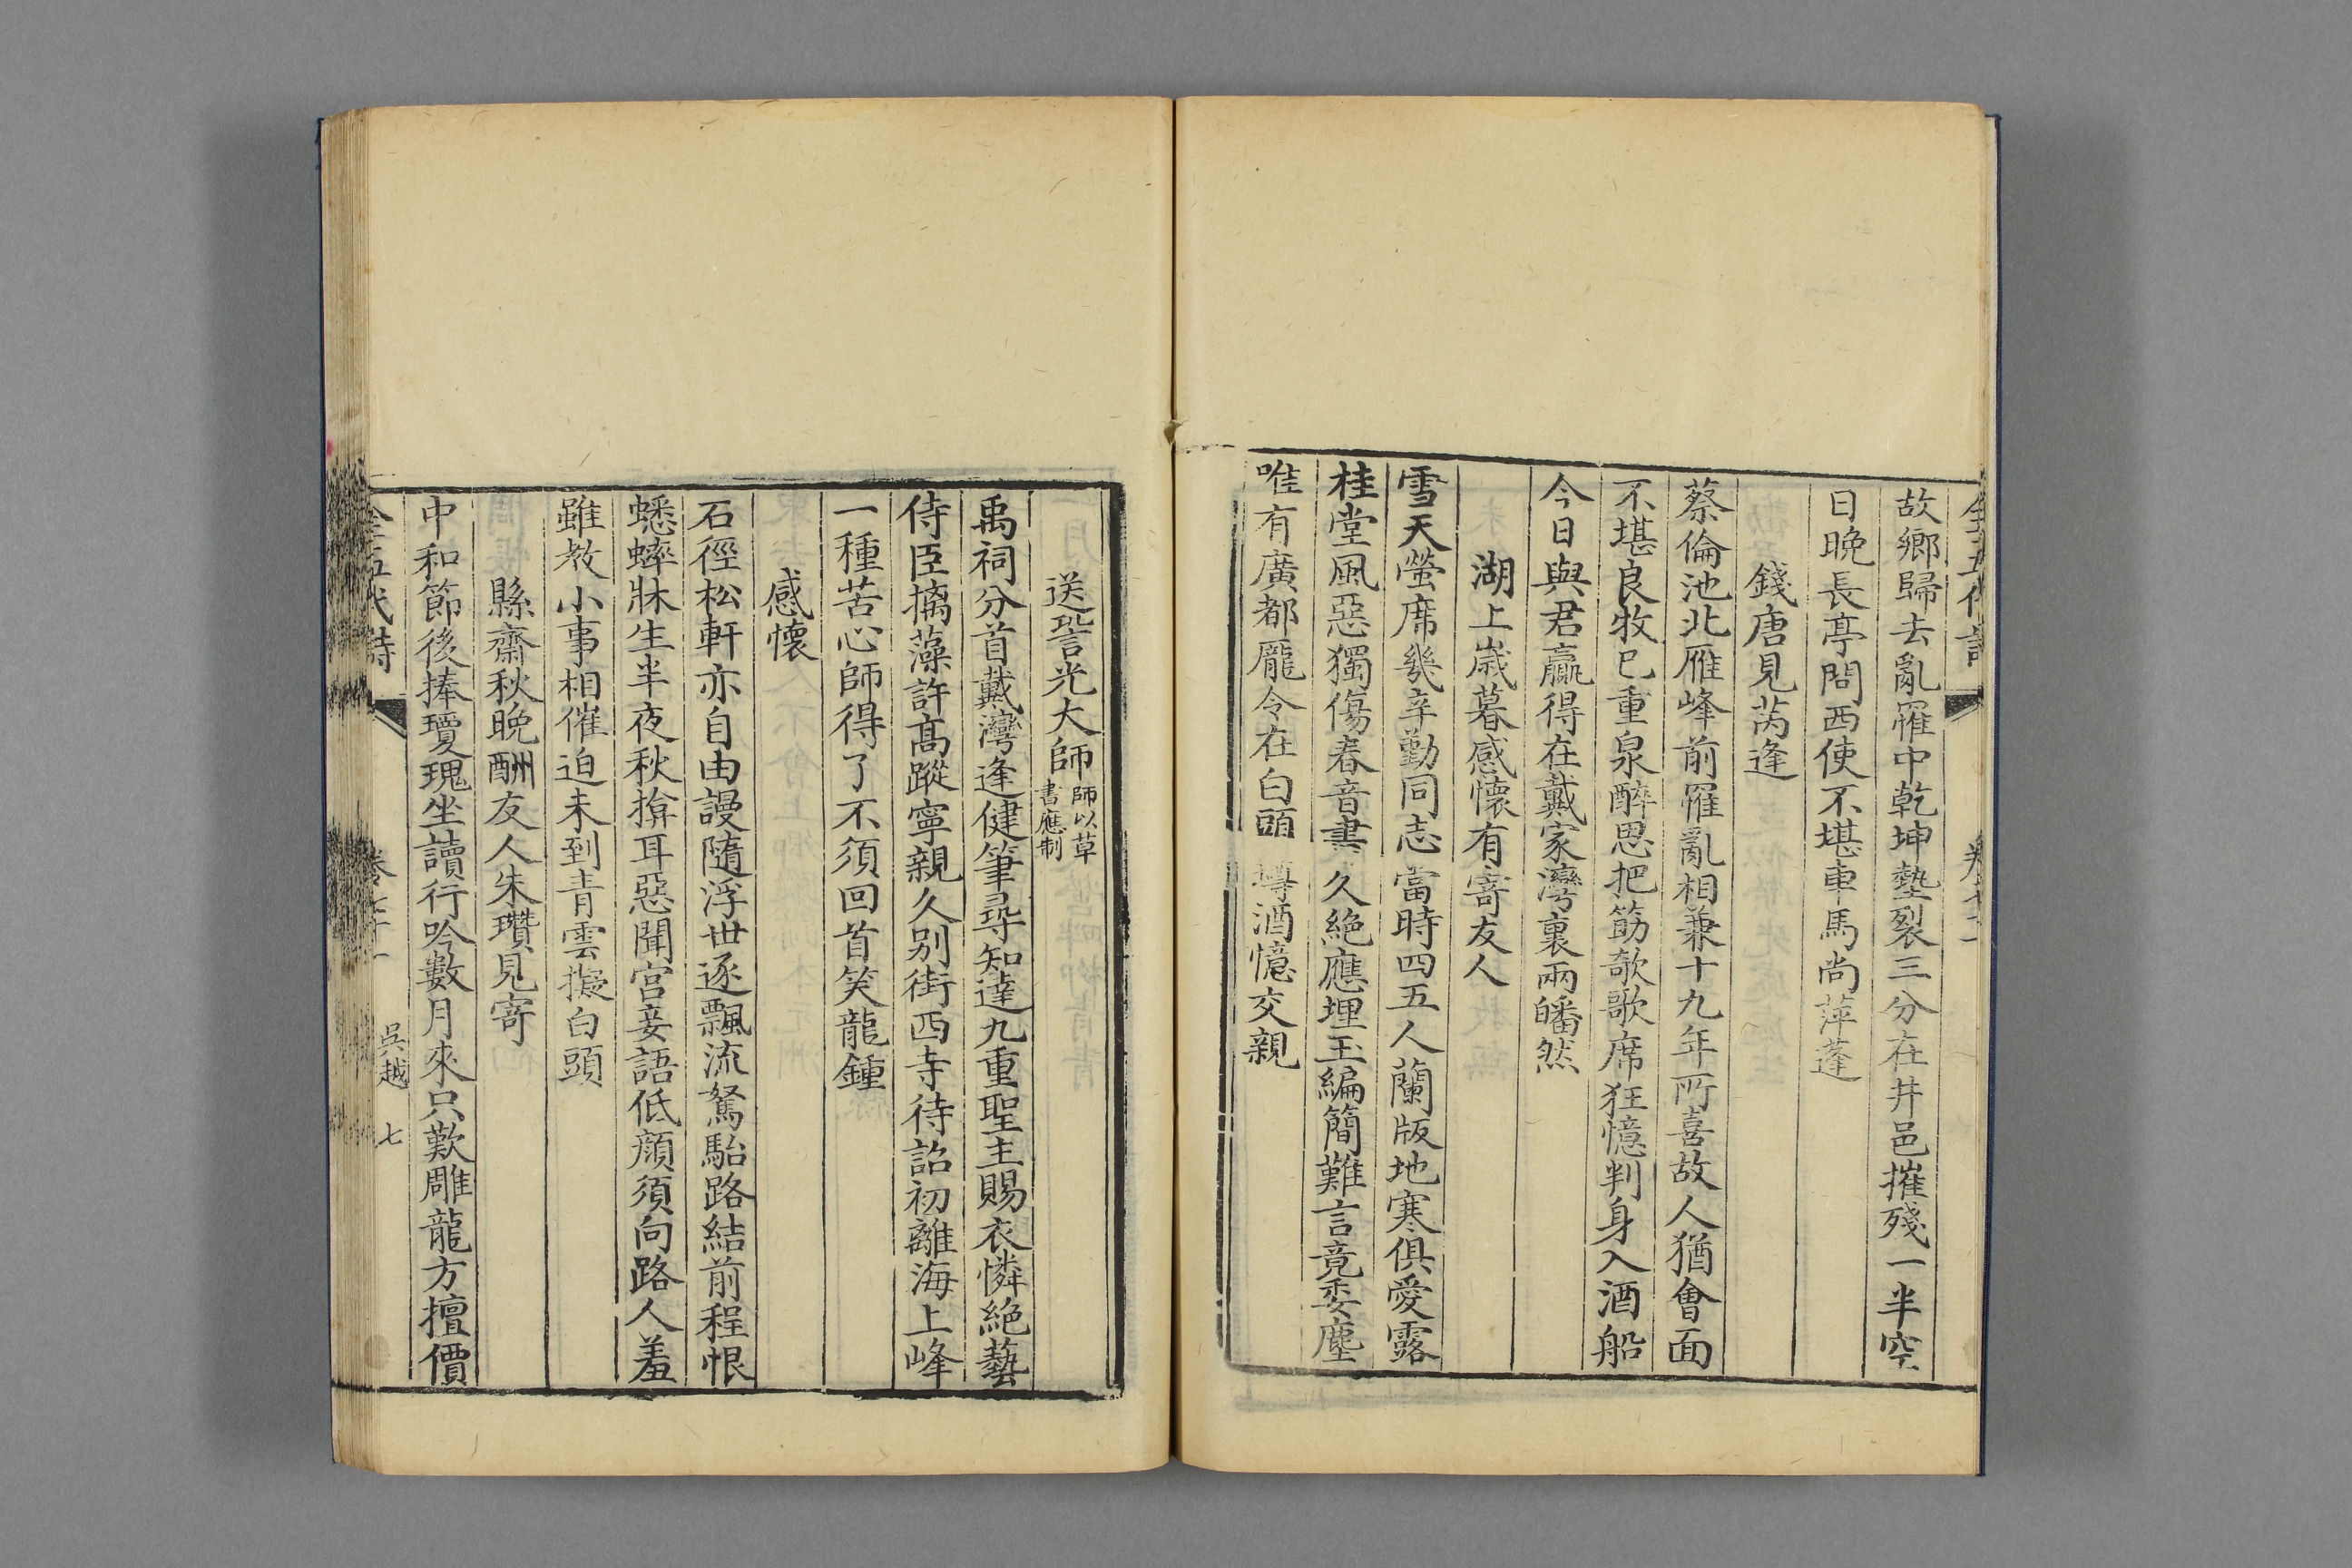 故鄉歸去亂罹中乾坤墊裂三分在井邑摧殘一半空
日晚長亭問西使不堪車馬尚萍蓬
錢唐見芮逢
蔡倫池北雁峰前罹亂相兼十九年所喜故人猶會面
不堪良牧已重泉醉思把筯欹歌席狂憶判身入酒船
今日與君贏得在戴家灣裏兩皤然
湖上歲暮感懷有寄友人
雪天螢席幾辛勤同志當時四五人蘭版地寒俱愛露
桂堂風惡獨傷春音書久絕應埋玉編簡難言竟委塵
唯有廣都龐令在白頭樽酒憶交親
送䛒光大師師以草書應制
禹祠分首戴灣逢健筆尋知達九重聖主賜衣憐絕藝
侍臣摛藻許高蹤寧親久别街西寺待詔初離海上峰
一種苦心師得了不須回首笑龍鍾
感懷
石徑松軒亦自由謾隨浮世逐飄流駑駘路結前程恨
蟋蟀牀生半夜秋揜耳惡聞宮妾語低顏須向路人羞
雖教小事相催迫未到青雲擬白頭
縣齋秋晚酬友人朱瓚見寄
中和節後捧瓊瑰坐讀行吟數月來只歎雕龍方擅價
全五代詩 卷七十一 吳越 七